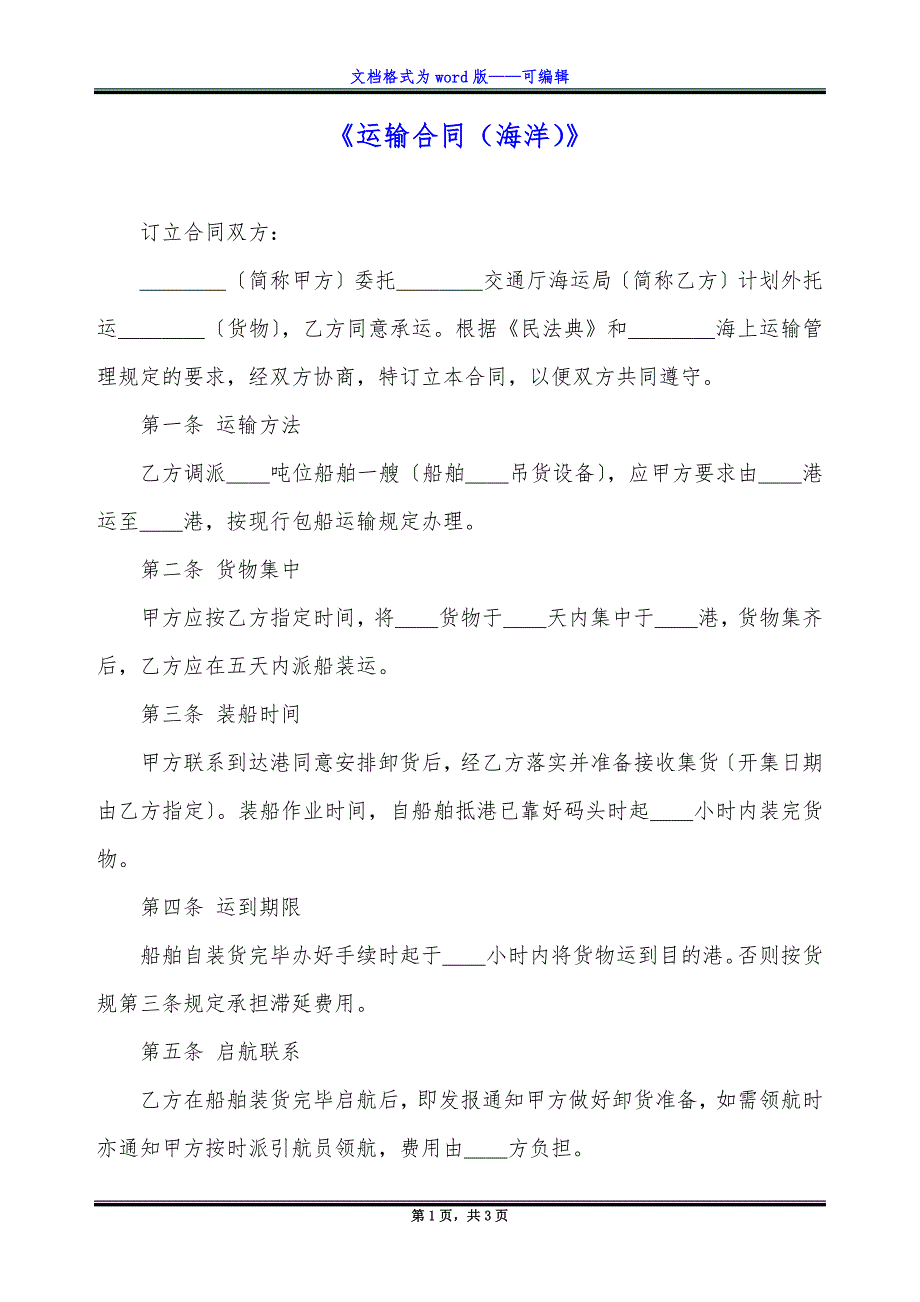 文档格式为 word 版——可编辑
《运输合同（海洋）》
订立合同双方：
________〔简称甲方〕委托________交通厅海运局〔简称乙方〕计划外托
运________〔货物〕，乙方同意承运。根据《民法典》和________海上运输管
理规定的要求，经双方协商，特订立本合同，以便双方共同遵守。
第一条 运输方法
乙方调派____吨位船舶一艘〔船舶____吊货设备〕，应甲方要求由____港
运至____港，按现行包船运输规定办理。
第二条 货物集中
甲方应按乙方指定时间，将____货物于____天内集中于____港，货物集齐
后，乙方应在五天内派船装运。
第三条 装船时间
甲方联系到达港同意安排卸货后，经乙方落实并准备接收集货〔开集日期
由乙方指定〕。装船作业时间，自船舶抵港已靠好码头时起____小时内装完货
物。
第四条 运到期限
船舶自装货完毕办好手续时起于____小时内将货物运到目的港。否则按货
规第三条规定承担滞延费用。
第五条 启航联系
乙方在船舶装货完毕启航后，即发报通知甲方做好卸货准备，如需领航时
亦通知甲方按时派引航员领航，费用由____方负担。
第 1 页，共 3 页